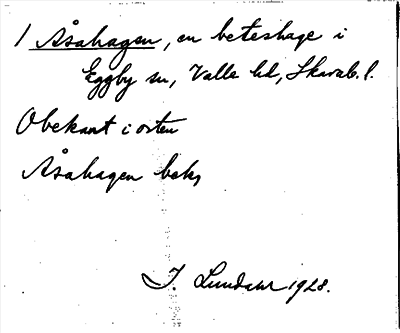 1 Åsahagen, en beteshage i
Eggby sn, Valle hd, Skarab. l.
Obekant i orten
Åsahagen bok,
I. Lundahl 1928.